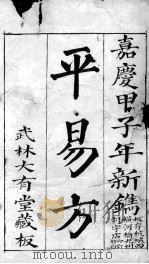 嘉慶甲子年新鐫
平易方
武林大有堂藏板